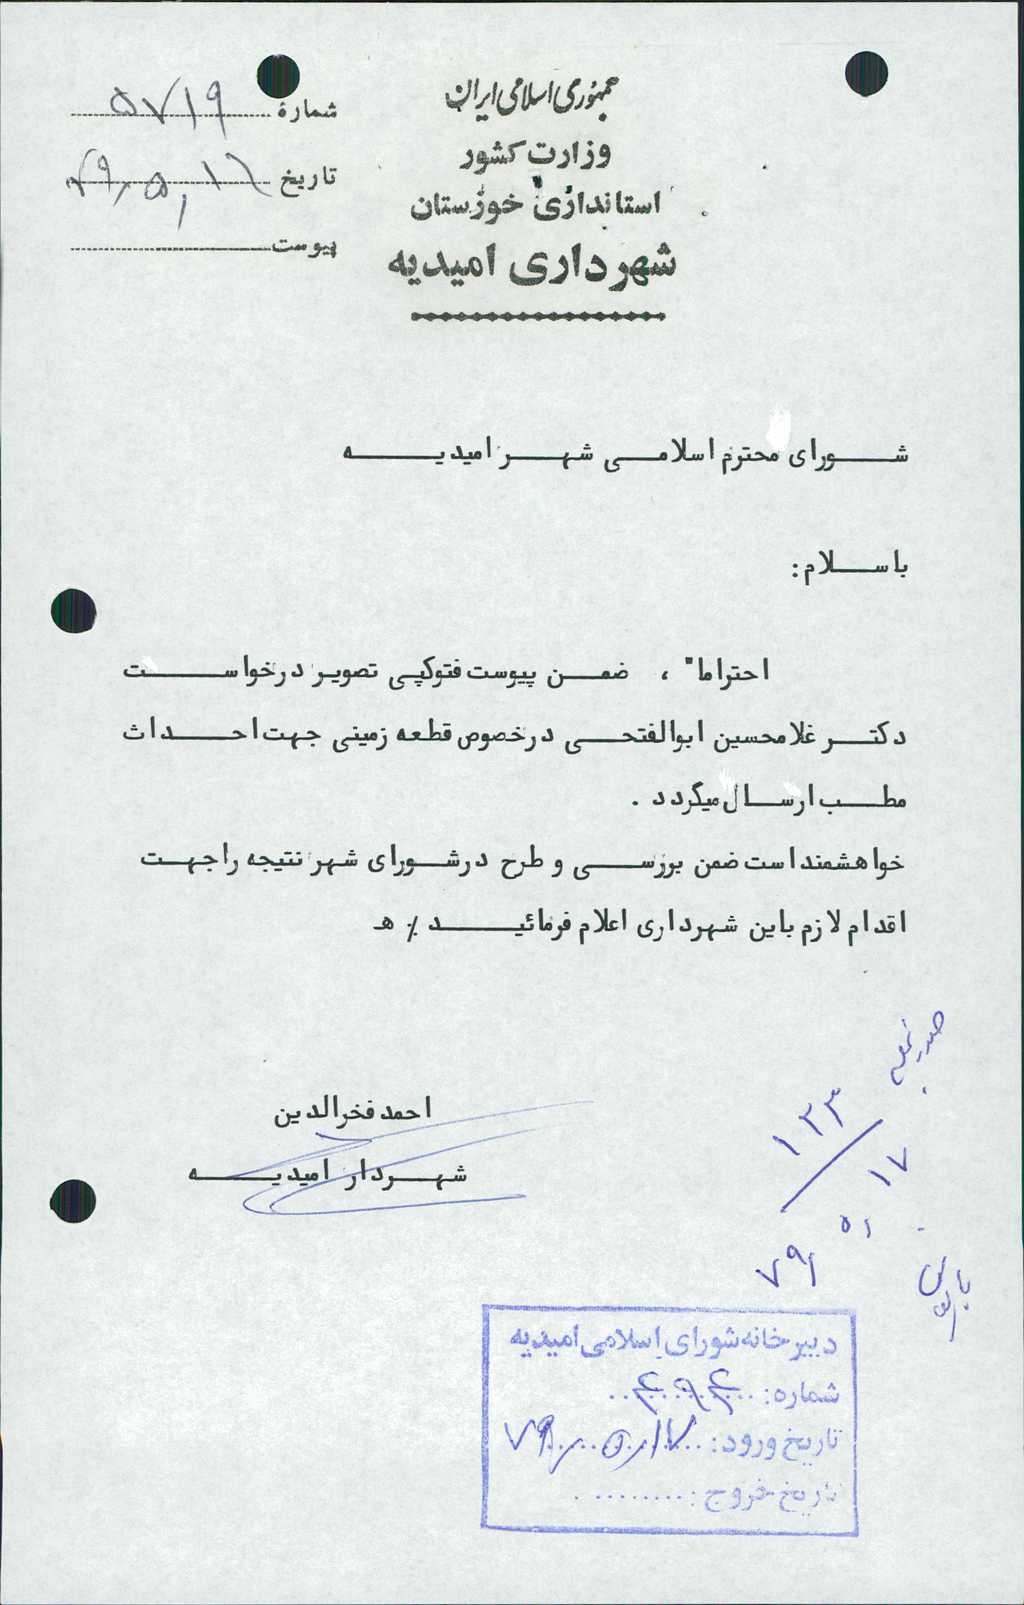 جمهوری اسلامی ایران
وزارت کشور
استانداری خوزستان
شهرداری امیدیه
شماره ۵۷۱۹
تاریخ ۷۹/۵/۱۶
پیوست
شورای محترم اسلامی شهر امیدیه
باسلام:
احتراما" ، ضمن پیوست فتوکپی تصویر درخواست
دکتر غلامحسین ابوالفتحی درخصوص قطعه زمینی جهت احداث
مطب ارسال میگردد .
خواهشمند است ضمن بررسی و طرح درشورای شهر نتیجه را جهت
اقدام لازم باین شهرداری اعلام فرمائید ٪ هـ
احمد فخرالدین
شهردار امیدیه
۱۲۳
۱۷
۵
۷۹
دبیرخانه شورای اسلامی امیدیه
شماره: ۴۹۴
تاریخ ورود: ۷۹/۵/۱۷
تاریخ خروج: